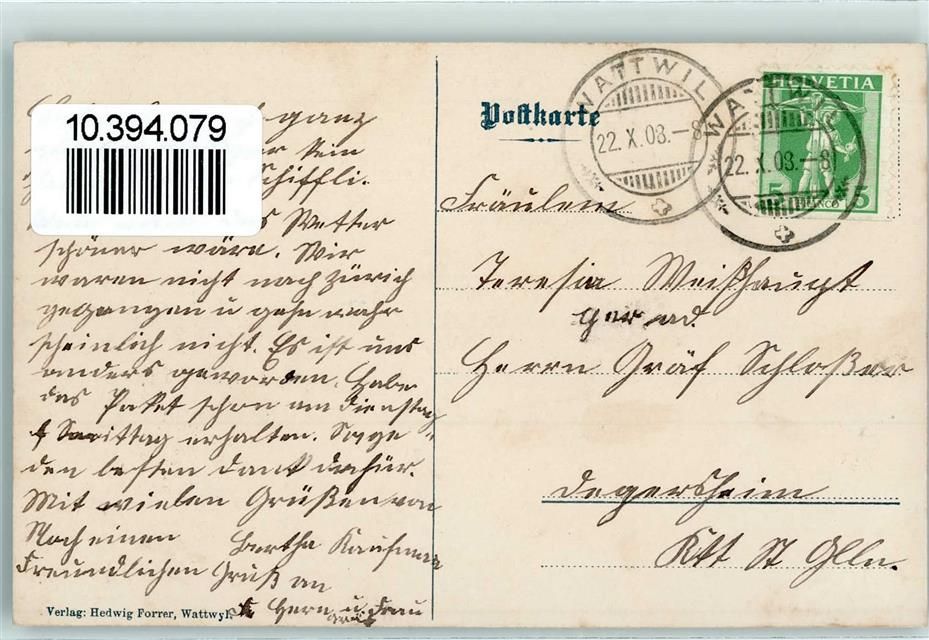 10.394.079
ganz
kein
Schiffli.
Wetter
schöner wäre. Wir
waren nicht nach Zürich
gegangen u gehn wahr
scheinlich nicht. Es ist uns
anders geworden. Habe
das Paket schon am Dienstag
erhalten. Sage
den besten Dank dafür.
Mit vielen Grüßen von
Bertha Kaufmann
Noch einen
Freundlichen Gruß an
Hern u. Frau
Gräf
Verlag: Hedwig Forrer, Wattwyl.
Postkarte
WATTWIL
22. X. 08. - 8
WATTWIL
22. X. 08. - 8
HELVETIA
5 FRANCO 5
Fräulein
Teresia Weißhaupt
per ad.
Herrn Gräf Schloßer
Degersheim
Ktt St Glln.